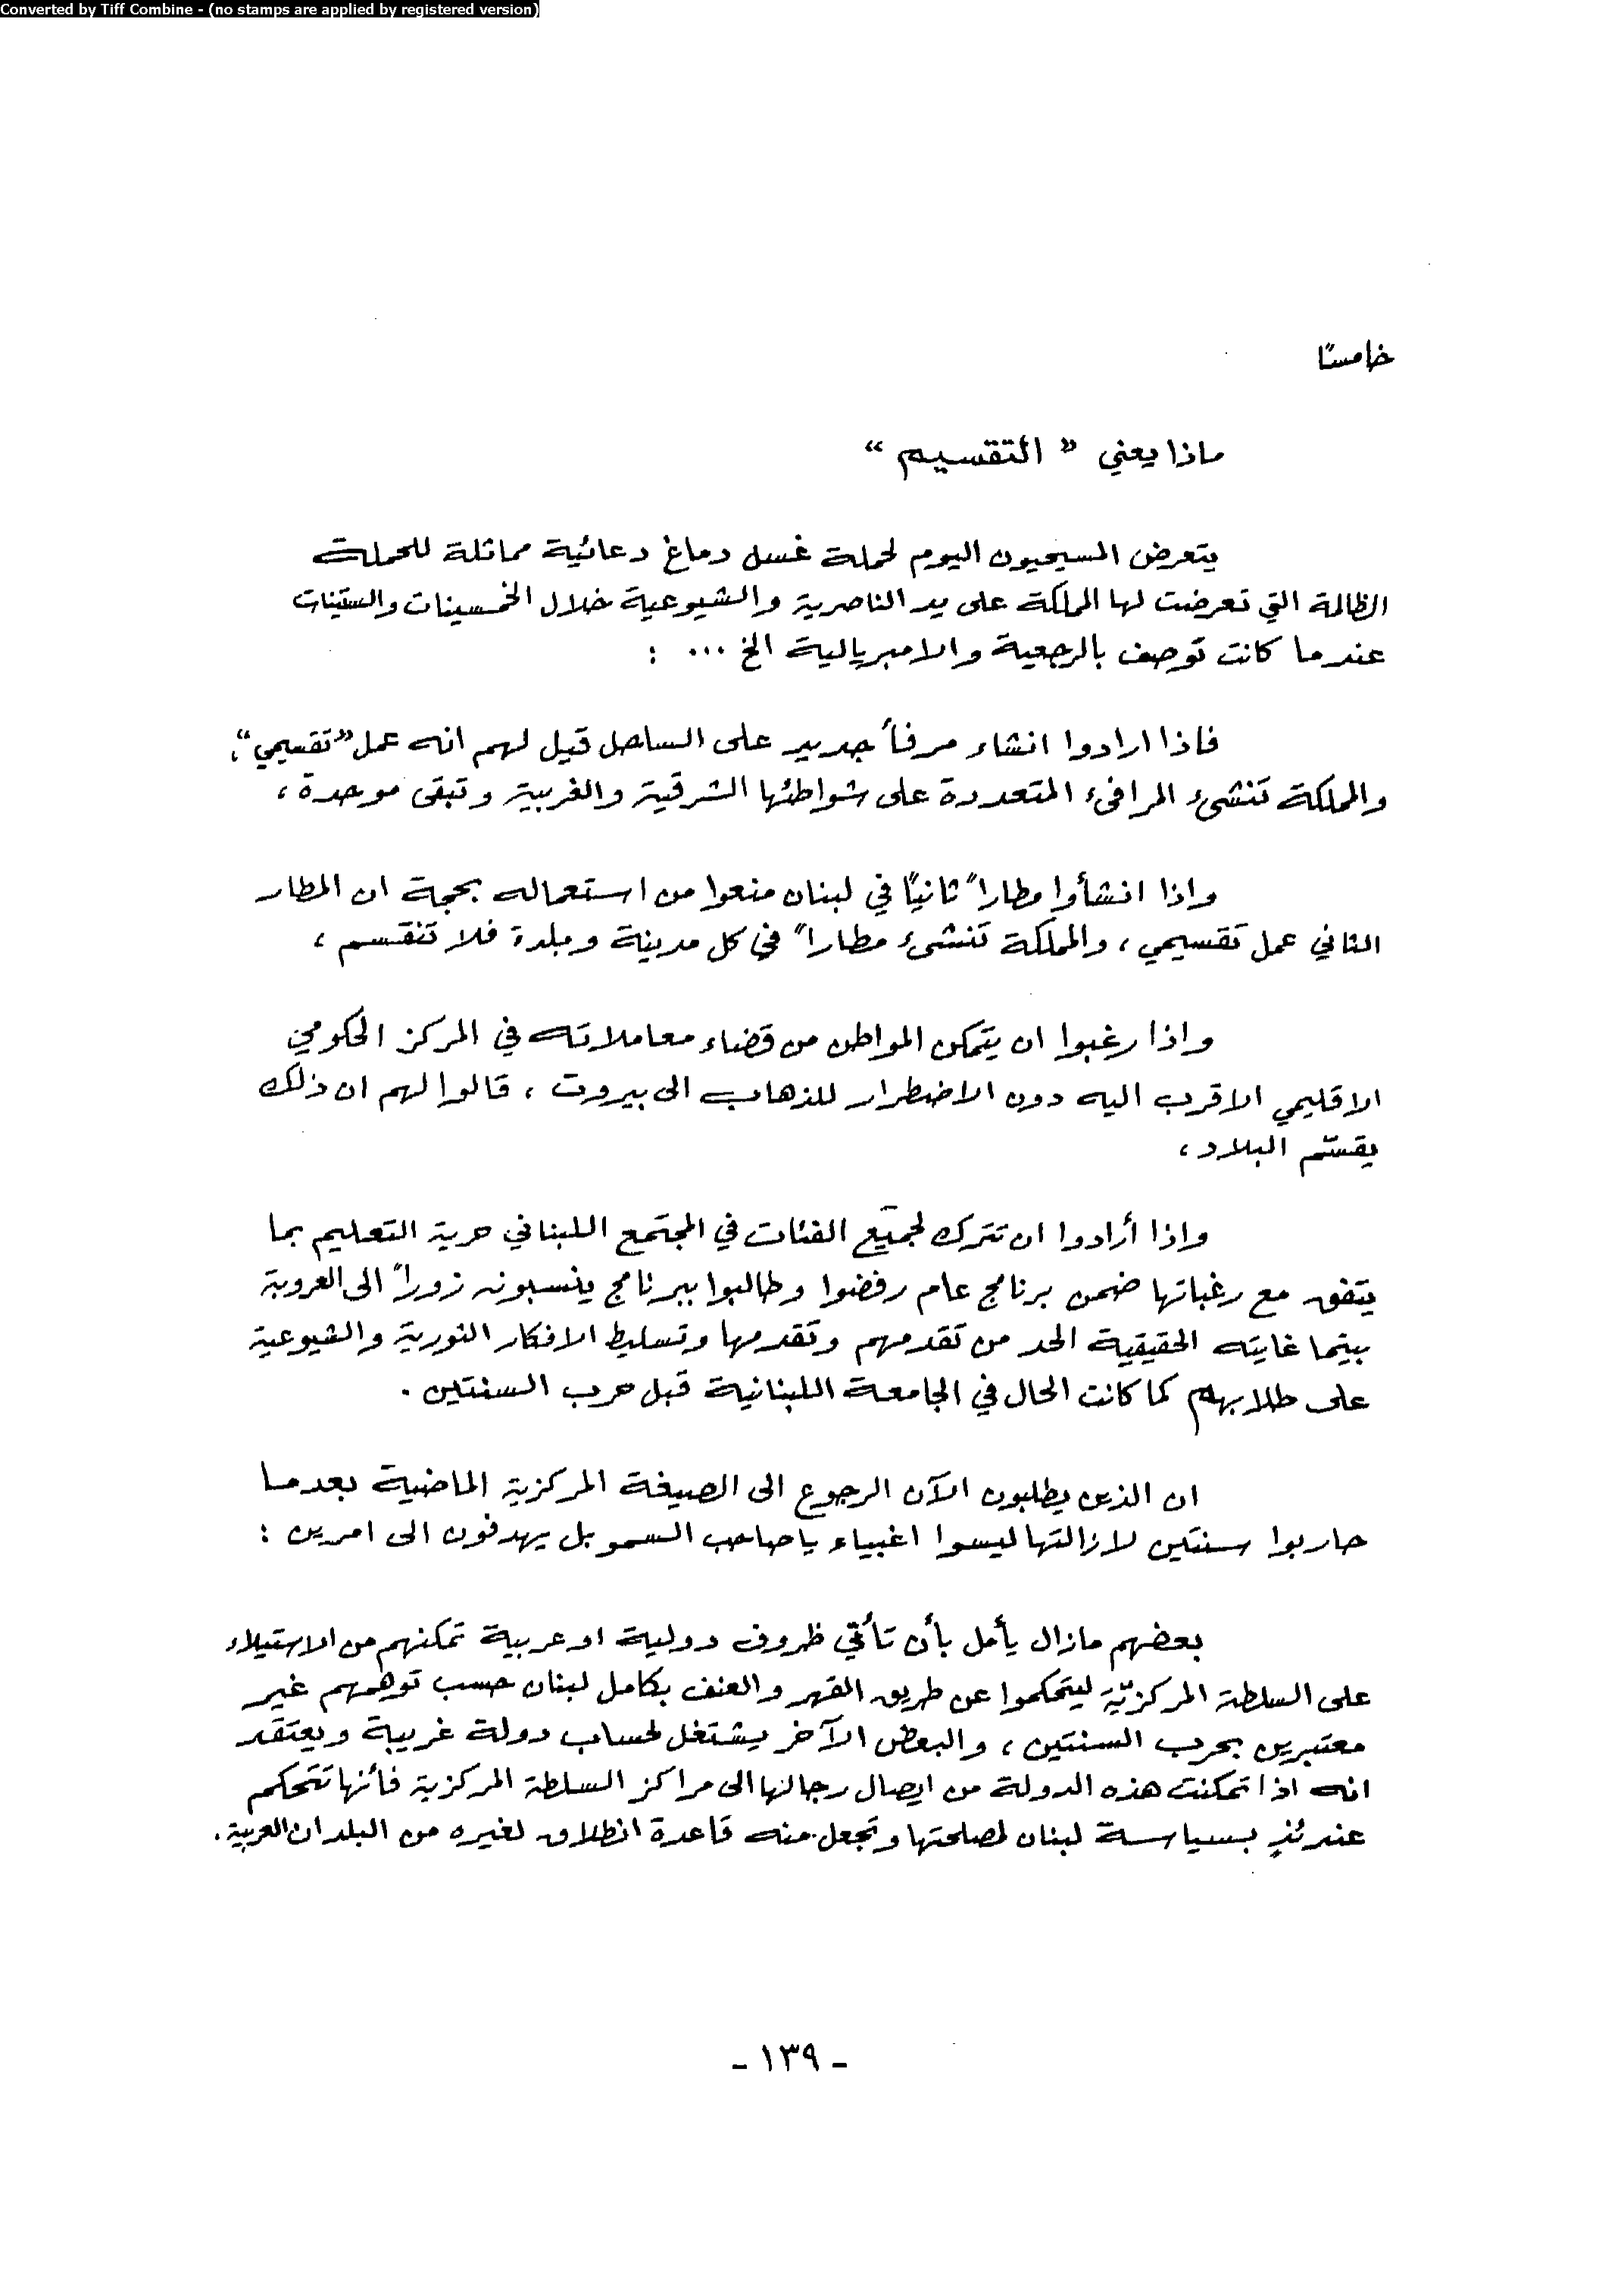 Converted by Tiff Combine - (no stamps are applied by registered version)
خامسًا
ماذا يعني « التقسيم »
يتعرض المسيحيون اليوم لحملة غسل دماغ دعائية مماثلة للحملة
الظالمة التي تعرضت لها المملكة على يد الناصرية والشيوعية خلال الخمسينات والستينات
عندما كانت توصف بالرجعية والامبريالية الخ ... :
فاذا ارادوا انشاء مرفأ جديد على الساحل قيل لهم انه عمل «تقسيمي»،
والمملكة تنشىء المرافىء المتعددة على شواطئها الشرقية والغربية وتبقى موحدة ،
واذا انشأوا مطاراً ثانيًا في لبنان منعوا من استعماله بحجة ان المطار
الثاني عمل تقسيمي ، والمملكة تنشىء مطاراً في كل مدينة وبلدة فلا تنقسم ،
واذا رغبوا ان يتمكن المواطن من قضاء معاملاته في المركز الحكومي
الاقليمي الاقرب اليه دون الاضطرار للذهاب الى بيروت ، قالوا لهم ان ذلك
يقسّم البلاد ،
واذا أرادوا ان تترك لجميع الفئات في المجتمع اللبناني حرية التعليم بما
يتفق مع رغباتها ضمن برنامج عام رفضوا وطالبوا ببرنامج ينسبونه زوراً الى العروبة
بيتما غايته الحقيقية الحد من تقدمهم وتقدمها وتسليط الافكار الثورية والشيوعية
على طلابهم كما كانت الحال في الجامعة اللبنانية قبل حرب السنتين .
ان الذين يطلبون الآن الرجوع الى الصيغة المركزية الماضية بعدما
حاربوا سنتين لازالتها ليسوا اغبياء يا صاحب السمو بل يهدفون الى امرين :
بعضهم مازال يأمل بأن تأتي ظروف دولية او عربية تمكنهم من الاستيلاء
على السلطة المركزيّة ليتحكموا عن طريق القهر والعنف بكامل لبنان حسب توهمهم غير
معتبرين بحرب السنتين ، والبعض الآخر يشتغل لحساب دولة غريبة ويعتقد
انه اذا تمكنت هذه الدولة من ايصال رجالها الى مراكز السلطة المركزية فأنها تتحكم
عندئذٍ بسياسة لبنان لمصلحتها وتجعل منه قاعدة انطلاق لغيره من البلدان العربية .
- ١٣٩ -